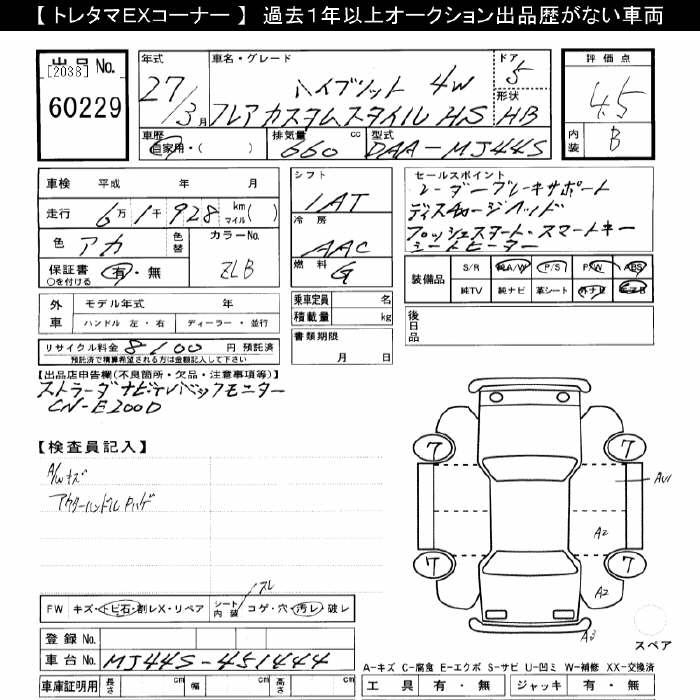 【 トレタマEXコーナー 】 過去１年以上オークション出品歴がない車両
出品 No.
[2038]
60229
年式
27/3月
車名・グレード
ハイブリット 4W
フレアカスタムスタイル HS
ドア
5
形状
HB
車歴
自家用・( )
排気量 cc
660
型式
DAA-MJ44S
評価点
4.5
内装
B
車検 平成 年 月
走行 6万1千928 km マイル( )
色 アカ
色替
カラーNo.
ZLB
保証書 有・無
○を付ける
シフト
IAT
冷房
AAC
燃料
G
セールスポイント
レーダーブレーキサポート
ディスチャージヘッド
プッシュスタート・スマートキー
シートヒーター
装備品
S/R 純A/W P/S P/W ABS
純TV 純ナビ 革シート 外ナビ
外車
モデル年式 年
ハンドル 左・右 ディーラー・並行
乗車定員 名
積載量 kg
後日品
リサイクル料金 8100 円 預託済
預託済で精算希望される方は金額記入して下さい
書類期限
月 日
【出品店申告欄(不良箇所・欠品・注意事項等)】
ストラーダナビ・TV・バックモニター
CN-E200D
【検査員記入】
A/Wキズ
アウターハンドル ハゲ
7 7
AU1
A2
7 7
A2
A3
スペア
スレ
FW キズ・トビ石・割レX・リペア
シート内装 コゲ・穴・汚レ・破レ
登録 No.
車台 No. MJ44S-451444
車庫証明用 長さ cm 幅 cm 高さ cm
A-キズ C-腐食 E-エクボ S-サビ U-凹ミ W-補修 XX-交換済
工具 有・無 ジャッキ 有・無